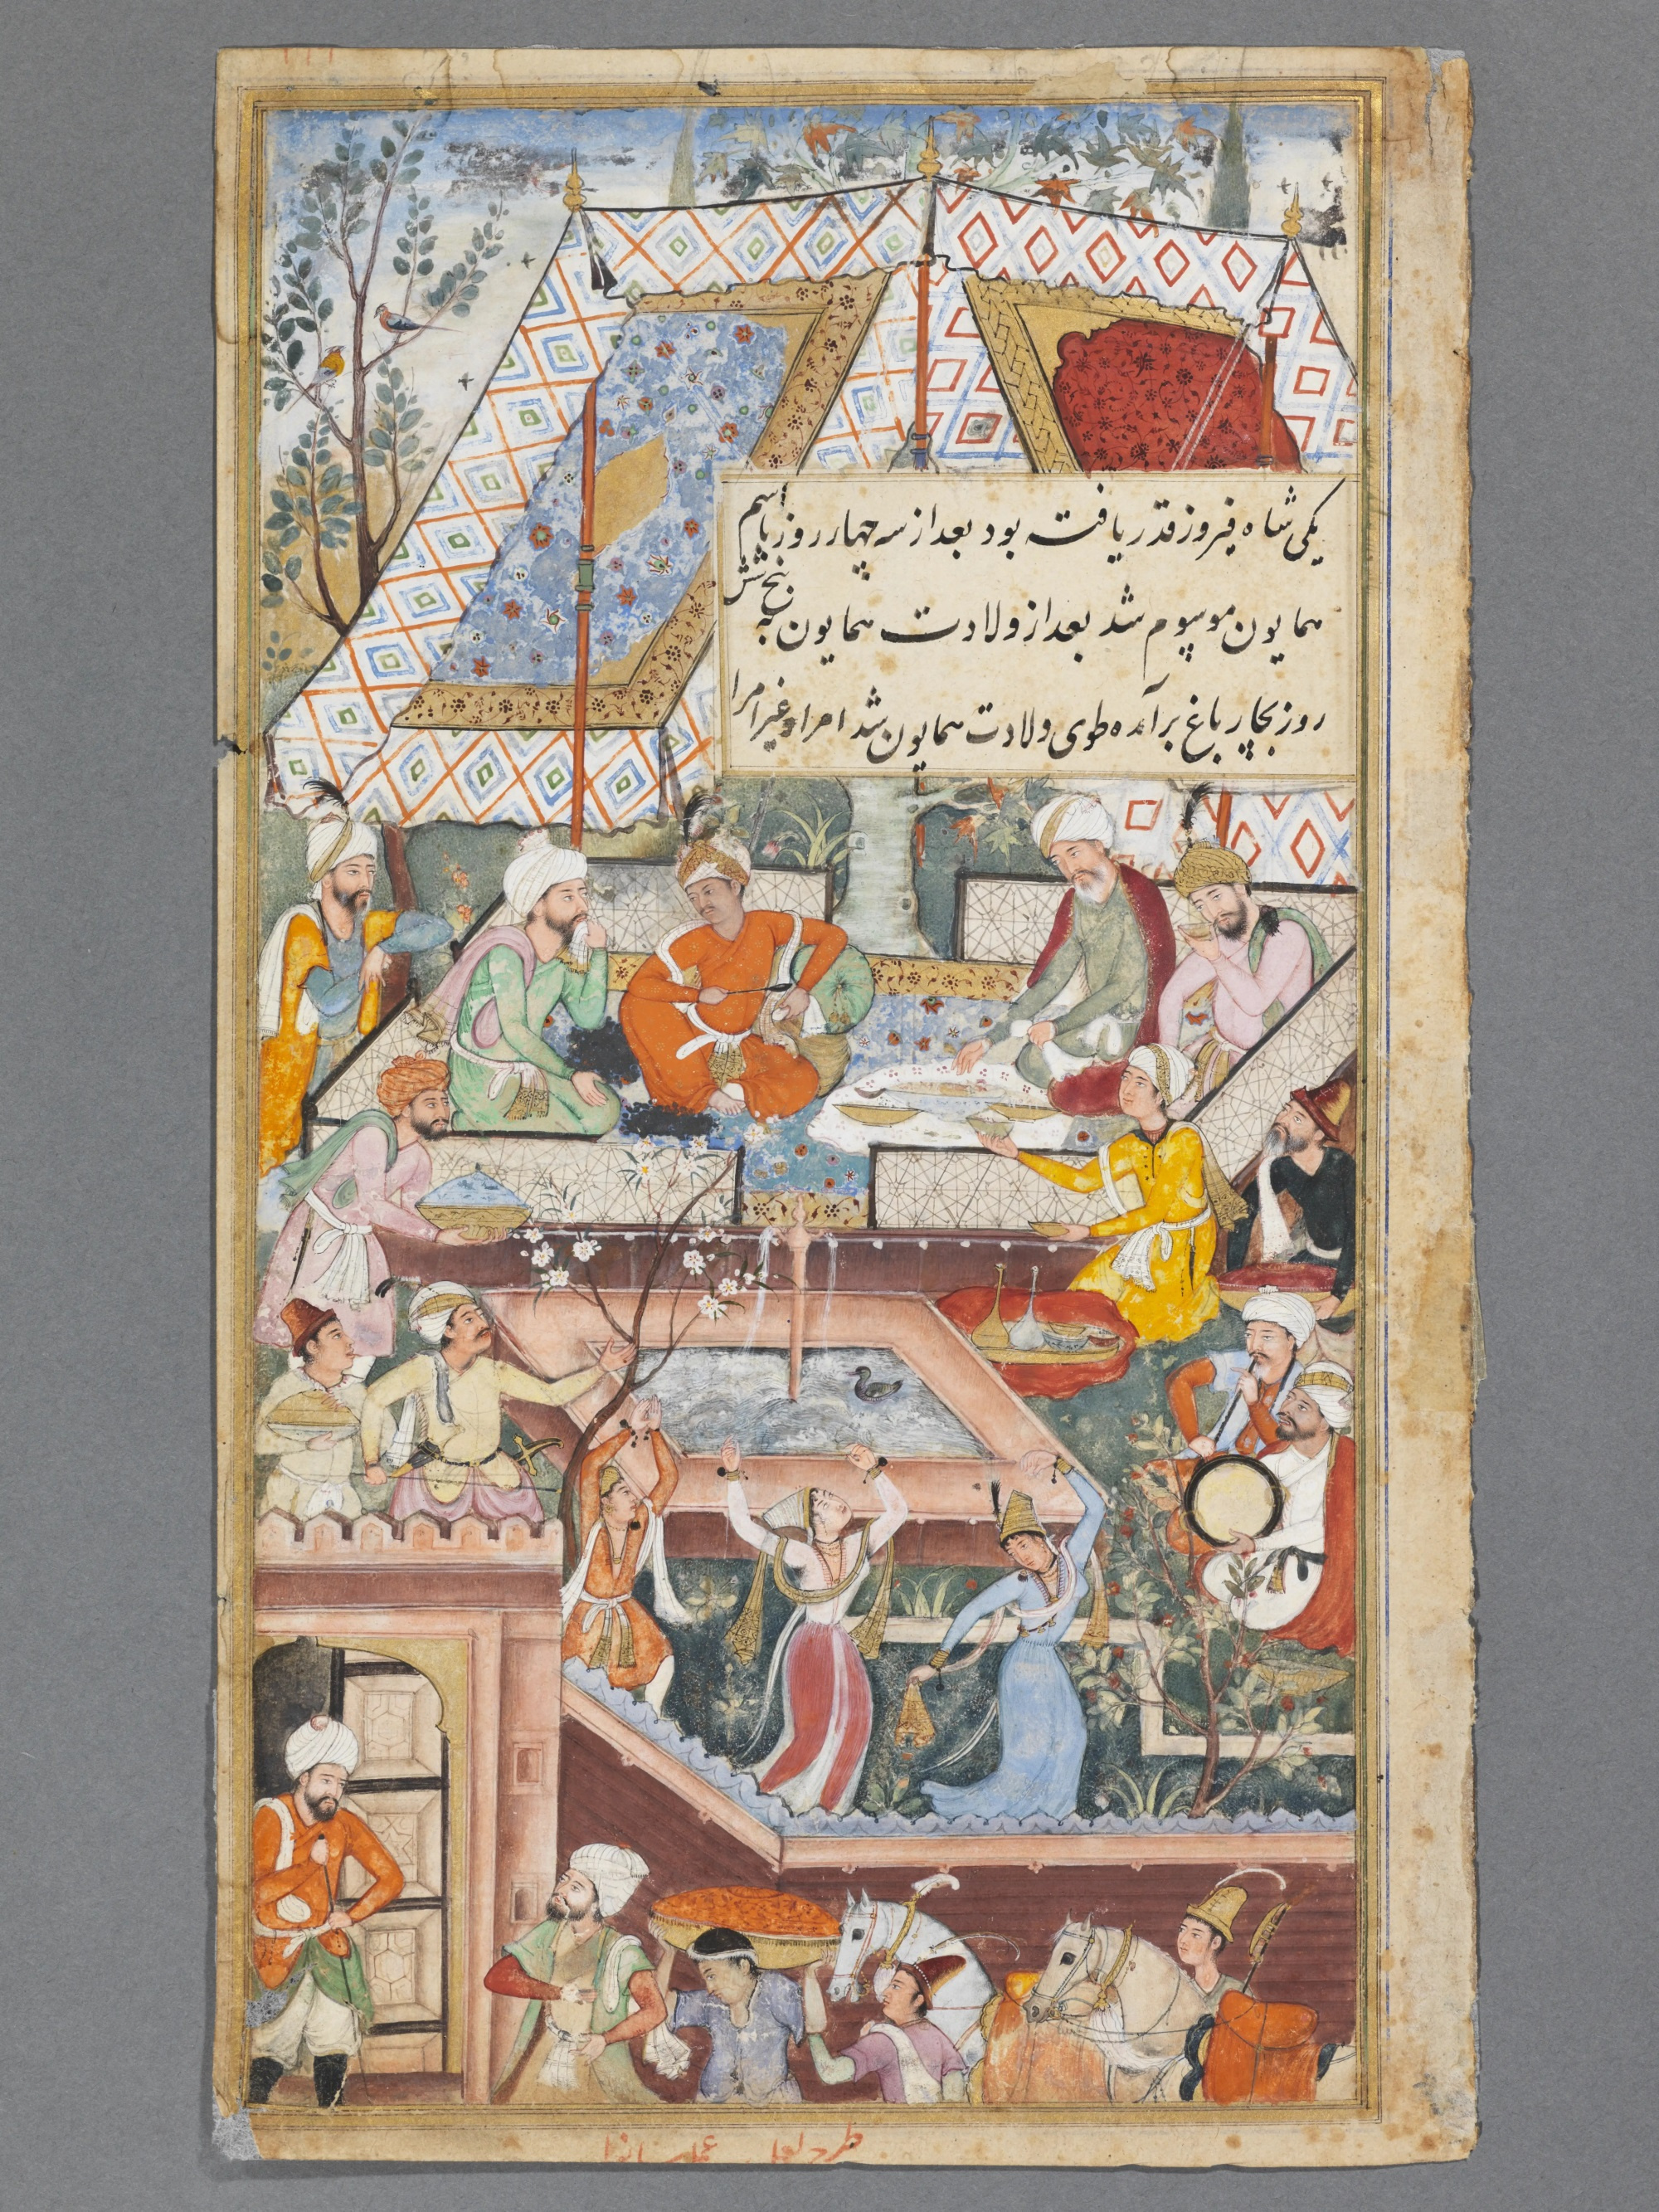 یکی شاه فیروز قدر یافته بود بعد از سه چهار روز باسم
همایون موسوم شد بعد از ولادت همایون به پنج شش
روز بچار باغ برآمده طوی ولادت همایون شد امرا و غیر امرا
طرح لعل عمل